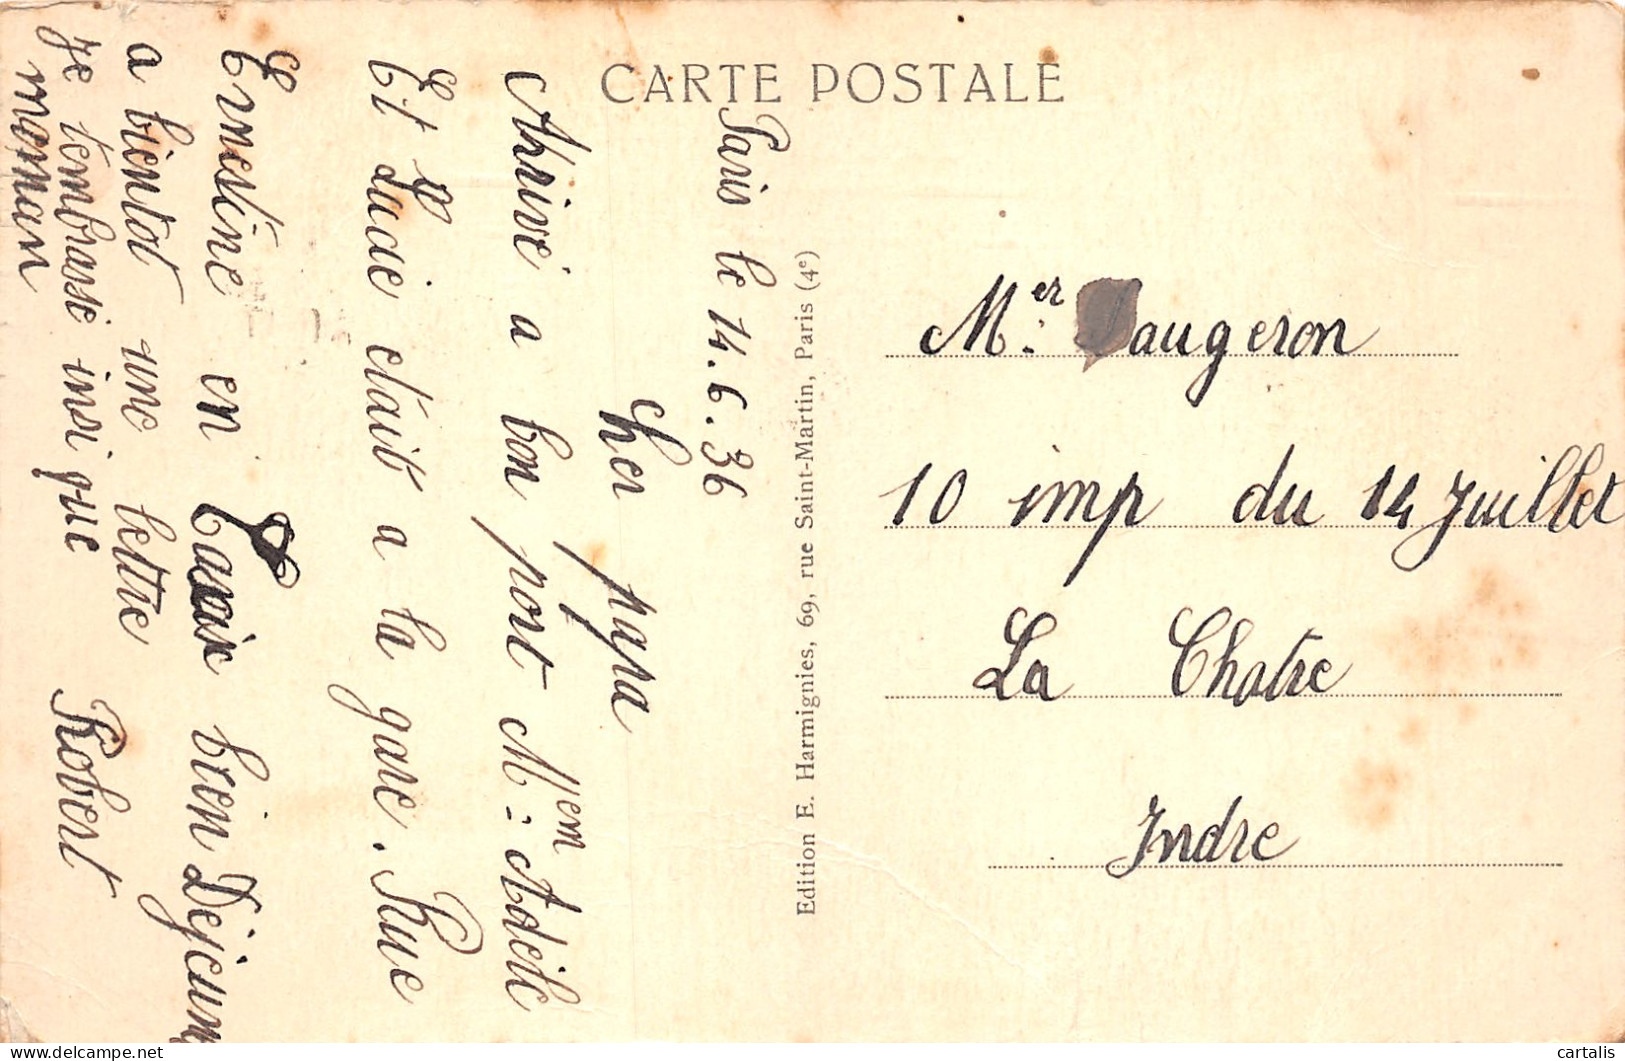 CARTE POSTALE
Paris le 14.6.36
cher papa
Arrivé a bon pont M^lem = Adele
Et Lucie était a la gare. Rue
Ernestine en bien Dejeuner
a bientot une lettre
Je t'embrasse insi que Robert
maman
Edition E. Harmignies, 69, rue Saint-Martin, Paris (4e)
M.er augeron
10 imp du 14 Juillet
La Chatre
Indre
cartalis